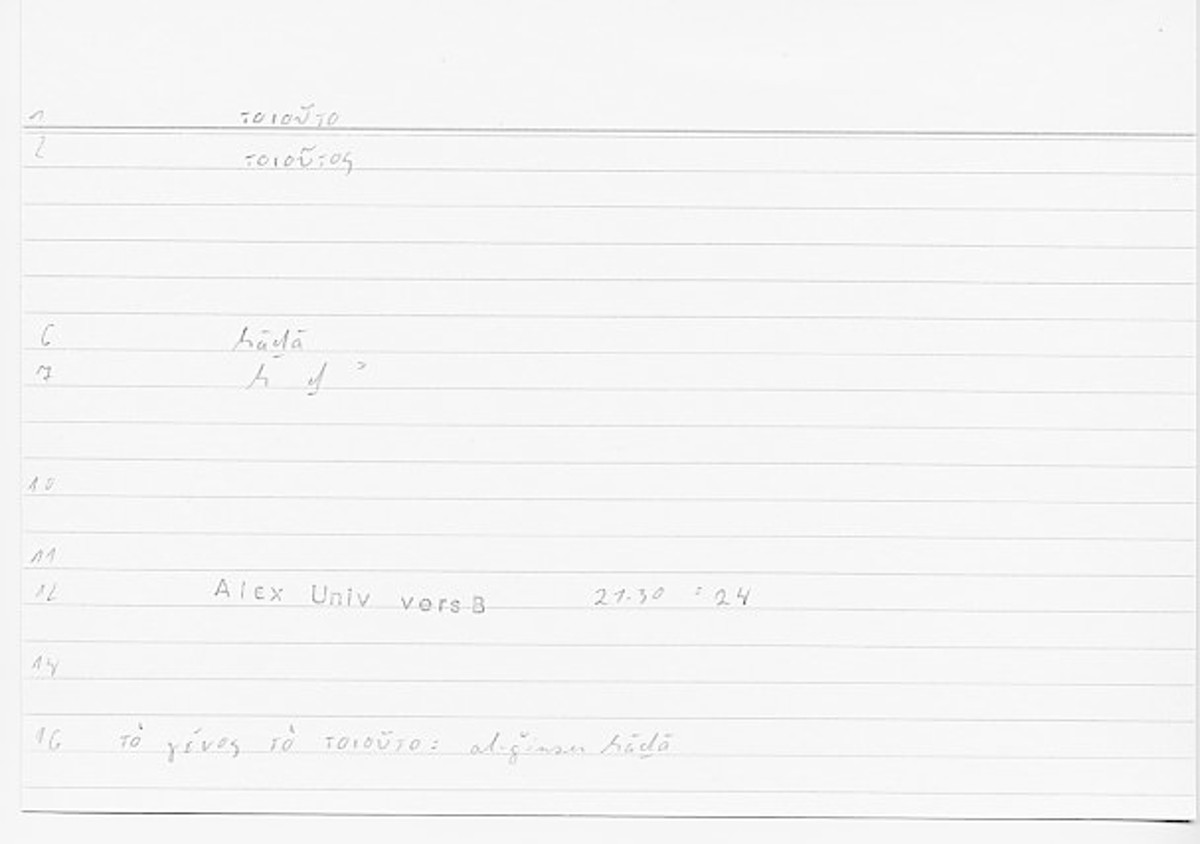 1 τοιοῦτο
2 τοιοῦτος
6 hāḏā
7 h ḏ ʾ
10
11
12 Alex Univ vers B 21.30 : 24
14
16 τὸ γένος τὸ τοιοῦτο: al-ǧinsu hāḏā